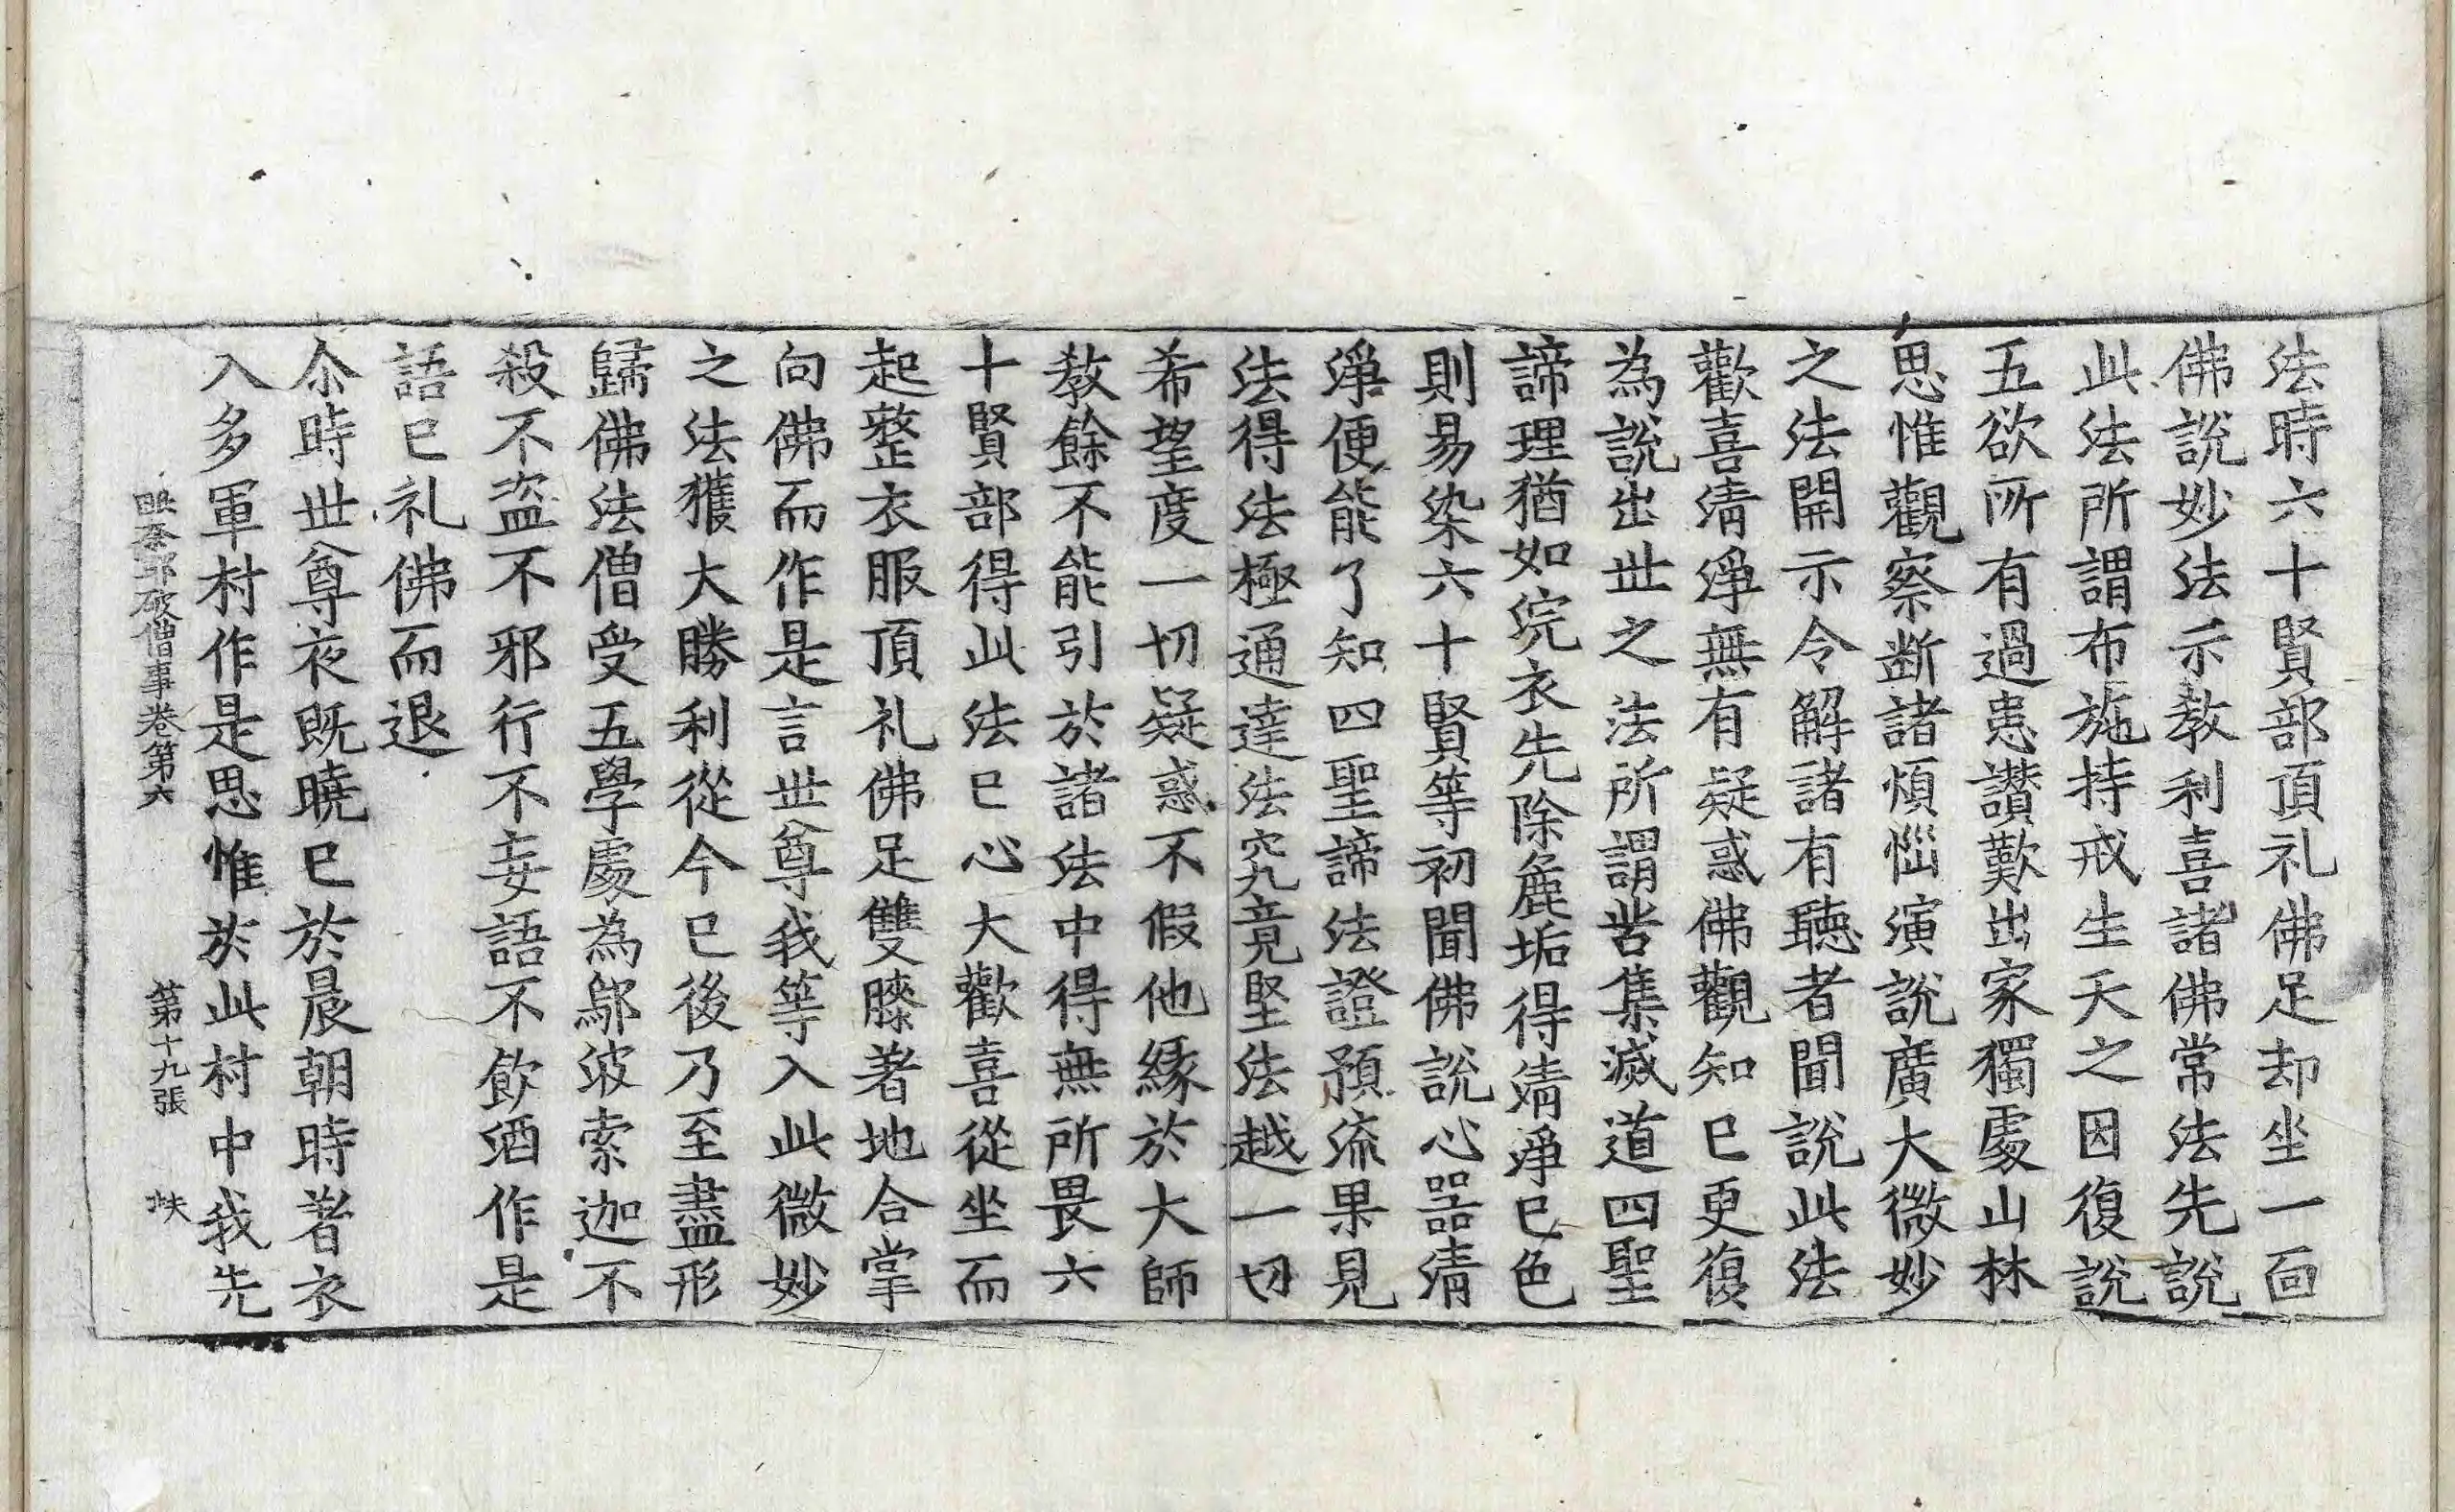 法時六十賢部頂礼佛足却坐一面
佛說妙法示教利喜諸佛常法先說
此法所謂布施持戒生天之因復說
五欲所有過患讚歎出家獨處山林
思惟觀察断諸煩惱演說廣大微妙
之法開示令解諸有聽者聞說此法
歡喜清淨無有疑惑佛觀知已更復
為說出世之法所謂苦集滅道四聖
諦理猶如浣衣先除麁垢得清淨已色
則易染六十賢等初聞佛說心器清
淨便能了知四聖諦法證預流果見
法得法極通達法究竟堅法越一切
希望度一切疑惑不假他緣於大師
教餘不能引於諸法中得無所畏六
十賢部得此法已心大歡喜從坐而
起整衣服頂礼佛足雙膝著地合掌
向佛而作是言世尊我等入此微妙
之法獲大勝利從今已後乃至盡形
歸佛法僧受五學處為鄔波索迦不
殺不盜不邪行不妄語不飲酒作是
語已礼佛而退
尒時世尊夜既曉已於晨朝時著衣
入多軍村作是思惟於此村中我先
破僧事卷第六 第十九張